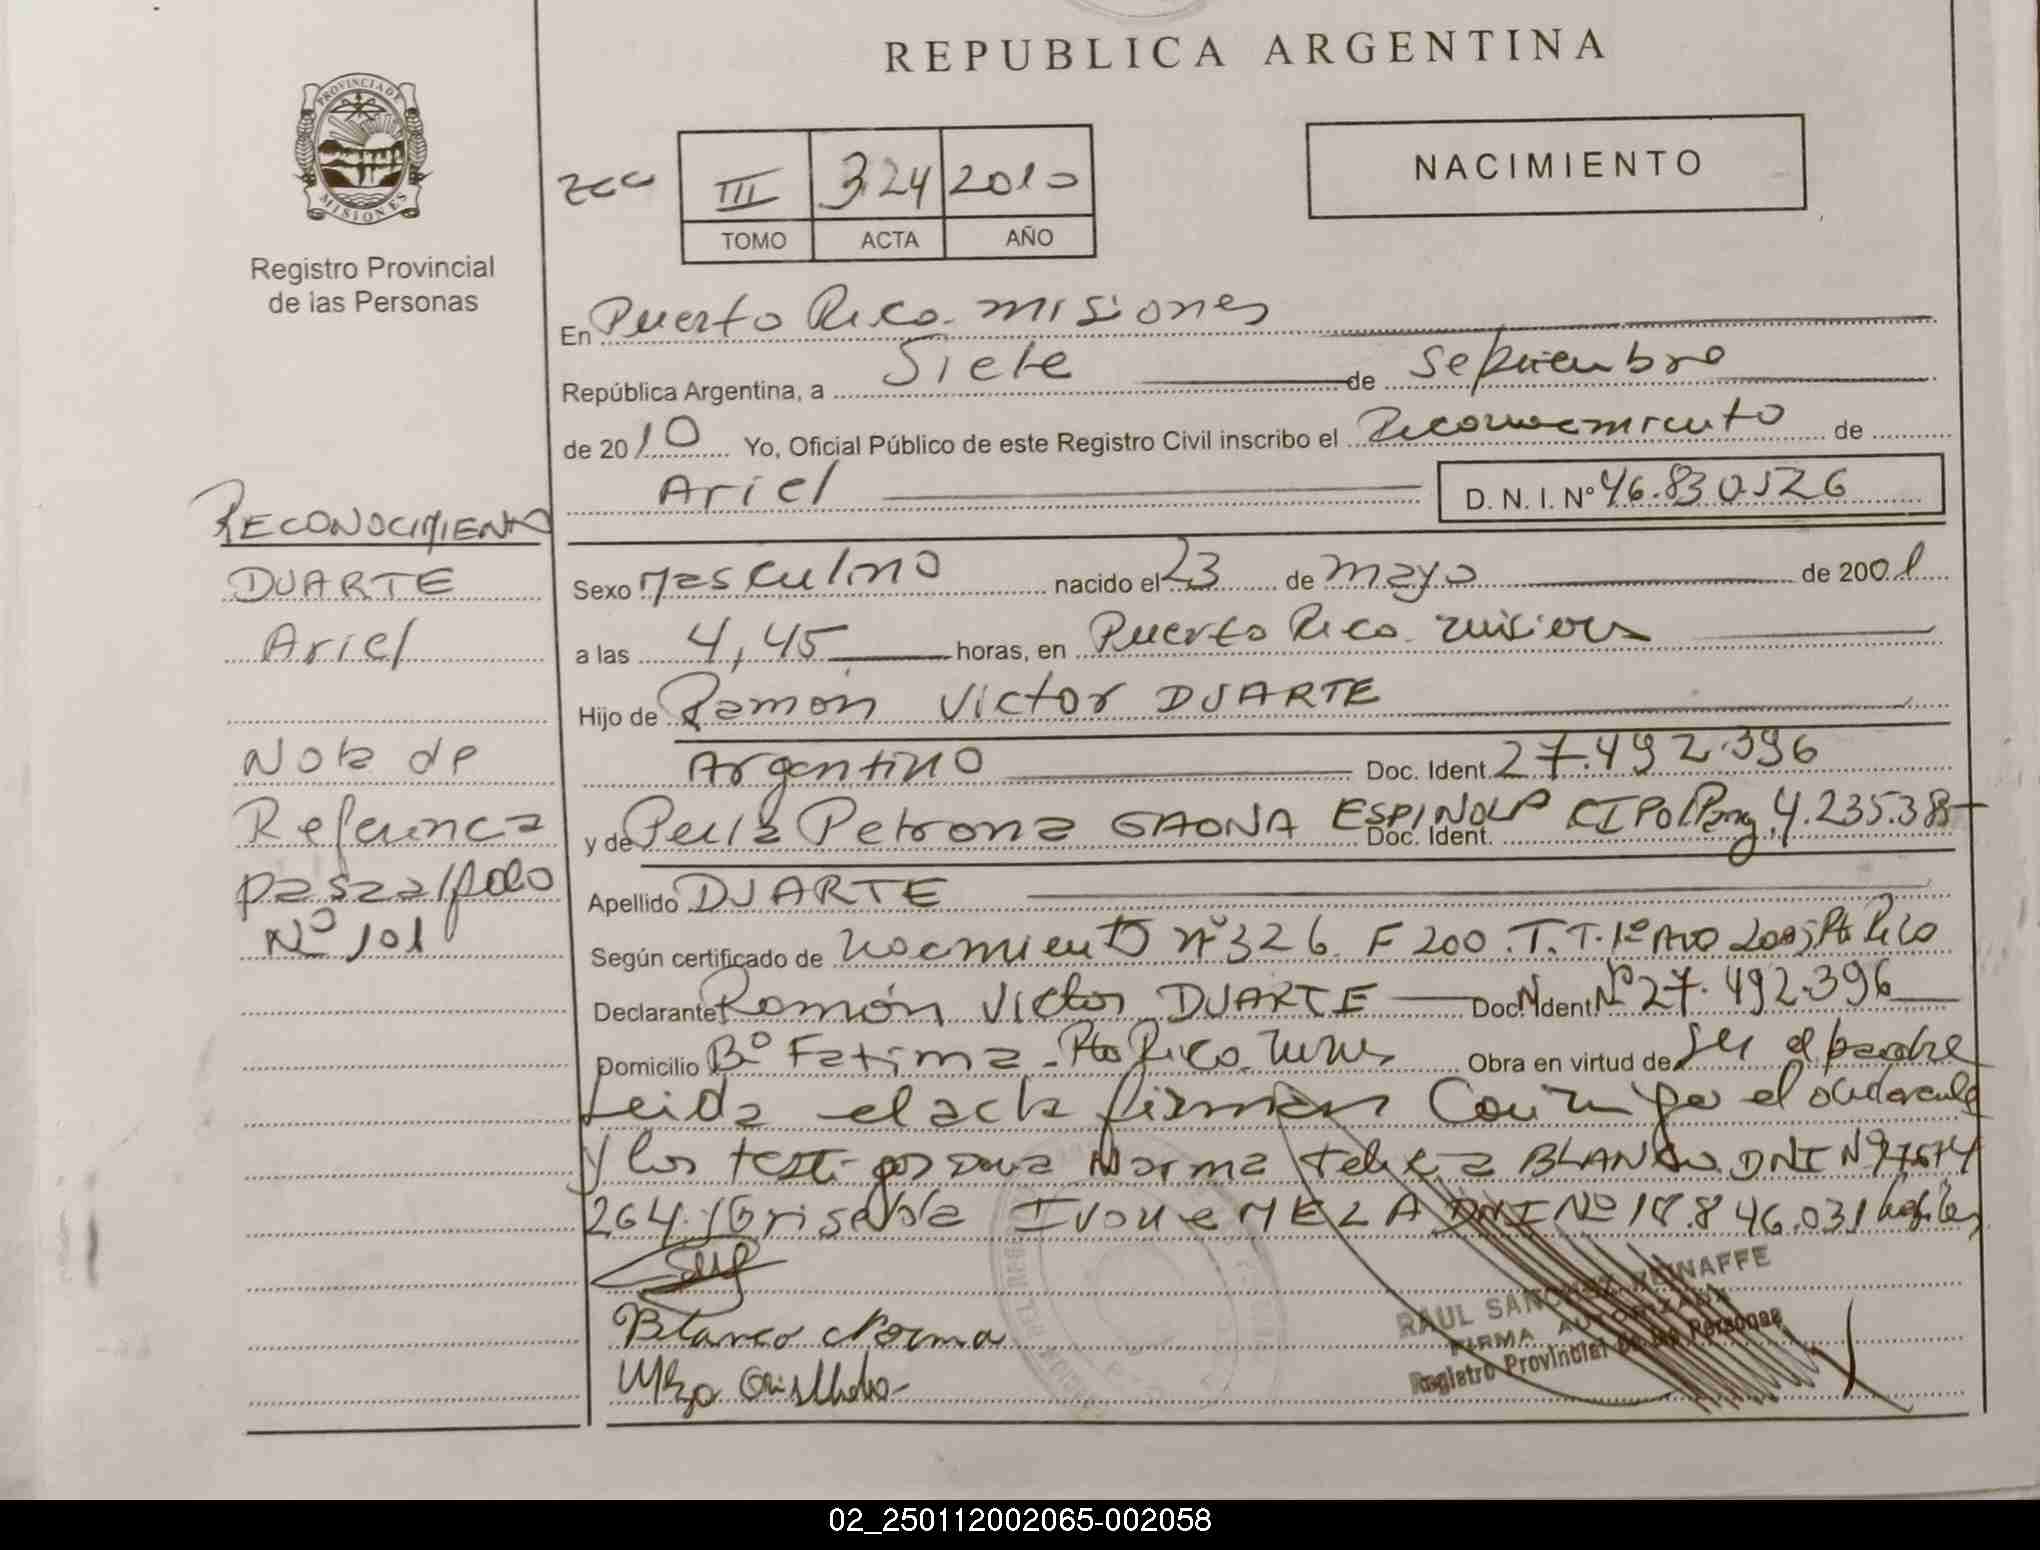 REPUBLICA ARGENTINA
PROVINCIA DE
MISIONES
Registro Provincial
de las Personas
III 324 2010
TOMO ACTA AÑO
NACIMIENTO
En Puerto Rico. Misiones
República Argentina, a Siete de Septiembre
de 2010 Yo, Oficial Público de este Registro Civil inscribo el Reconocimiento de
Ariel D. N. I. Nº 46.830.526
RECONOCIMIENTO
DUARTE
Ariel
Nota de
Referencia
pasa al folio
Nº 101
Sexo Masculino nacido el 23 de mayo de 2001
a las 4,45 horas, en Puerto Rico. Misiones
Hijo de Ramón Victor DUARTE
Argentino Doc. Ident. 27.492.396
y de Perla Petrona GAONA ESPINOLA Doc. Ident. CIPolParag 4.235.38
Apellido DUARTE
Según certificado de Nacimiento Nº 326. F 200. T. T. 1º Año Pto Rico
Declarante Ramón Victor DUARTE Doc. Ident. Nº 27.492.396
Domicilio Bº Fatima. Pto Rico. Mnes Obra en virtud de Ser el padre
Leida el acta firman Conmigo el declarante
y los testigos Norma BLANCO DNI Nº
264. y Griselda Ivone MEZA DNI Nº 18.846.031 habiles
Blanco Norma
Meza Griselda
RAUL SANCHEZ REINAFFE
FIRMA AUTORIZADA
Registro Provincial de las Personas
02_250112002065-002058